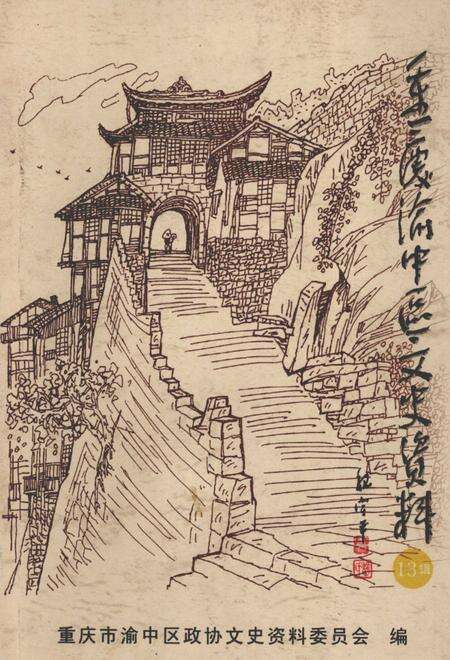 重庆渝中区文史资料
13辑
重庆市渝中区政协文史资料委员会 编